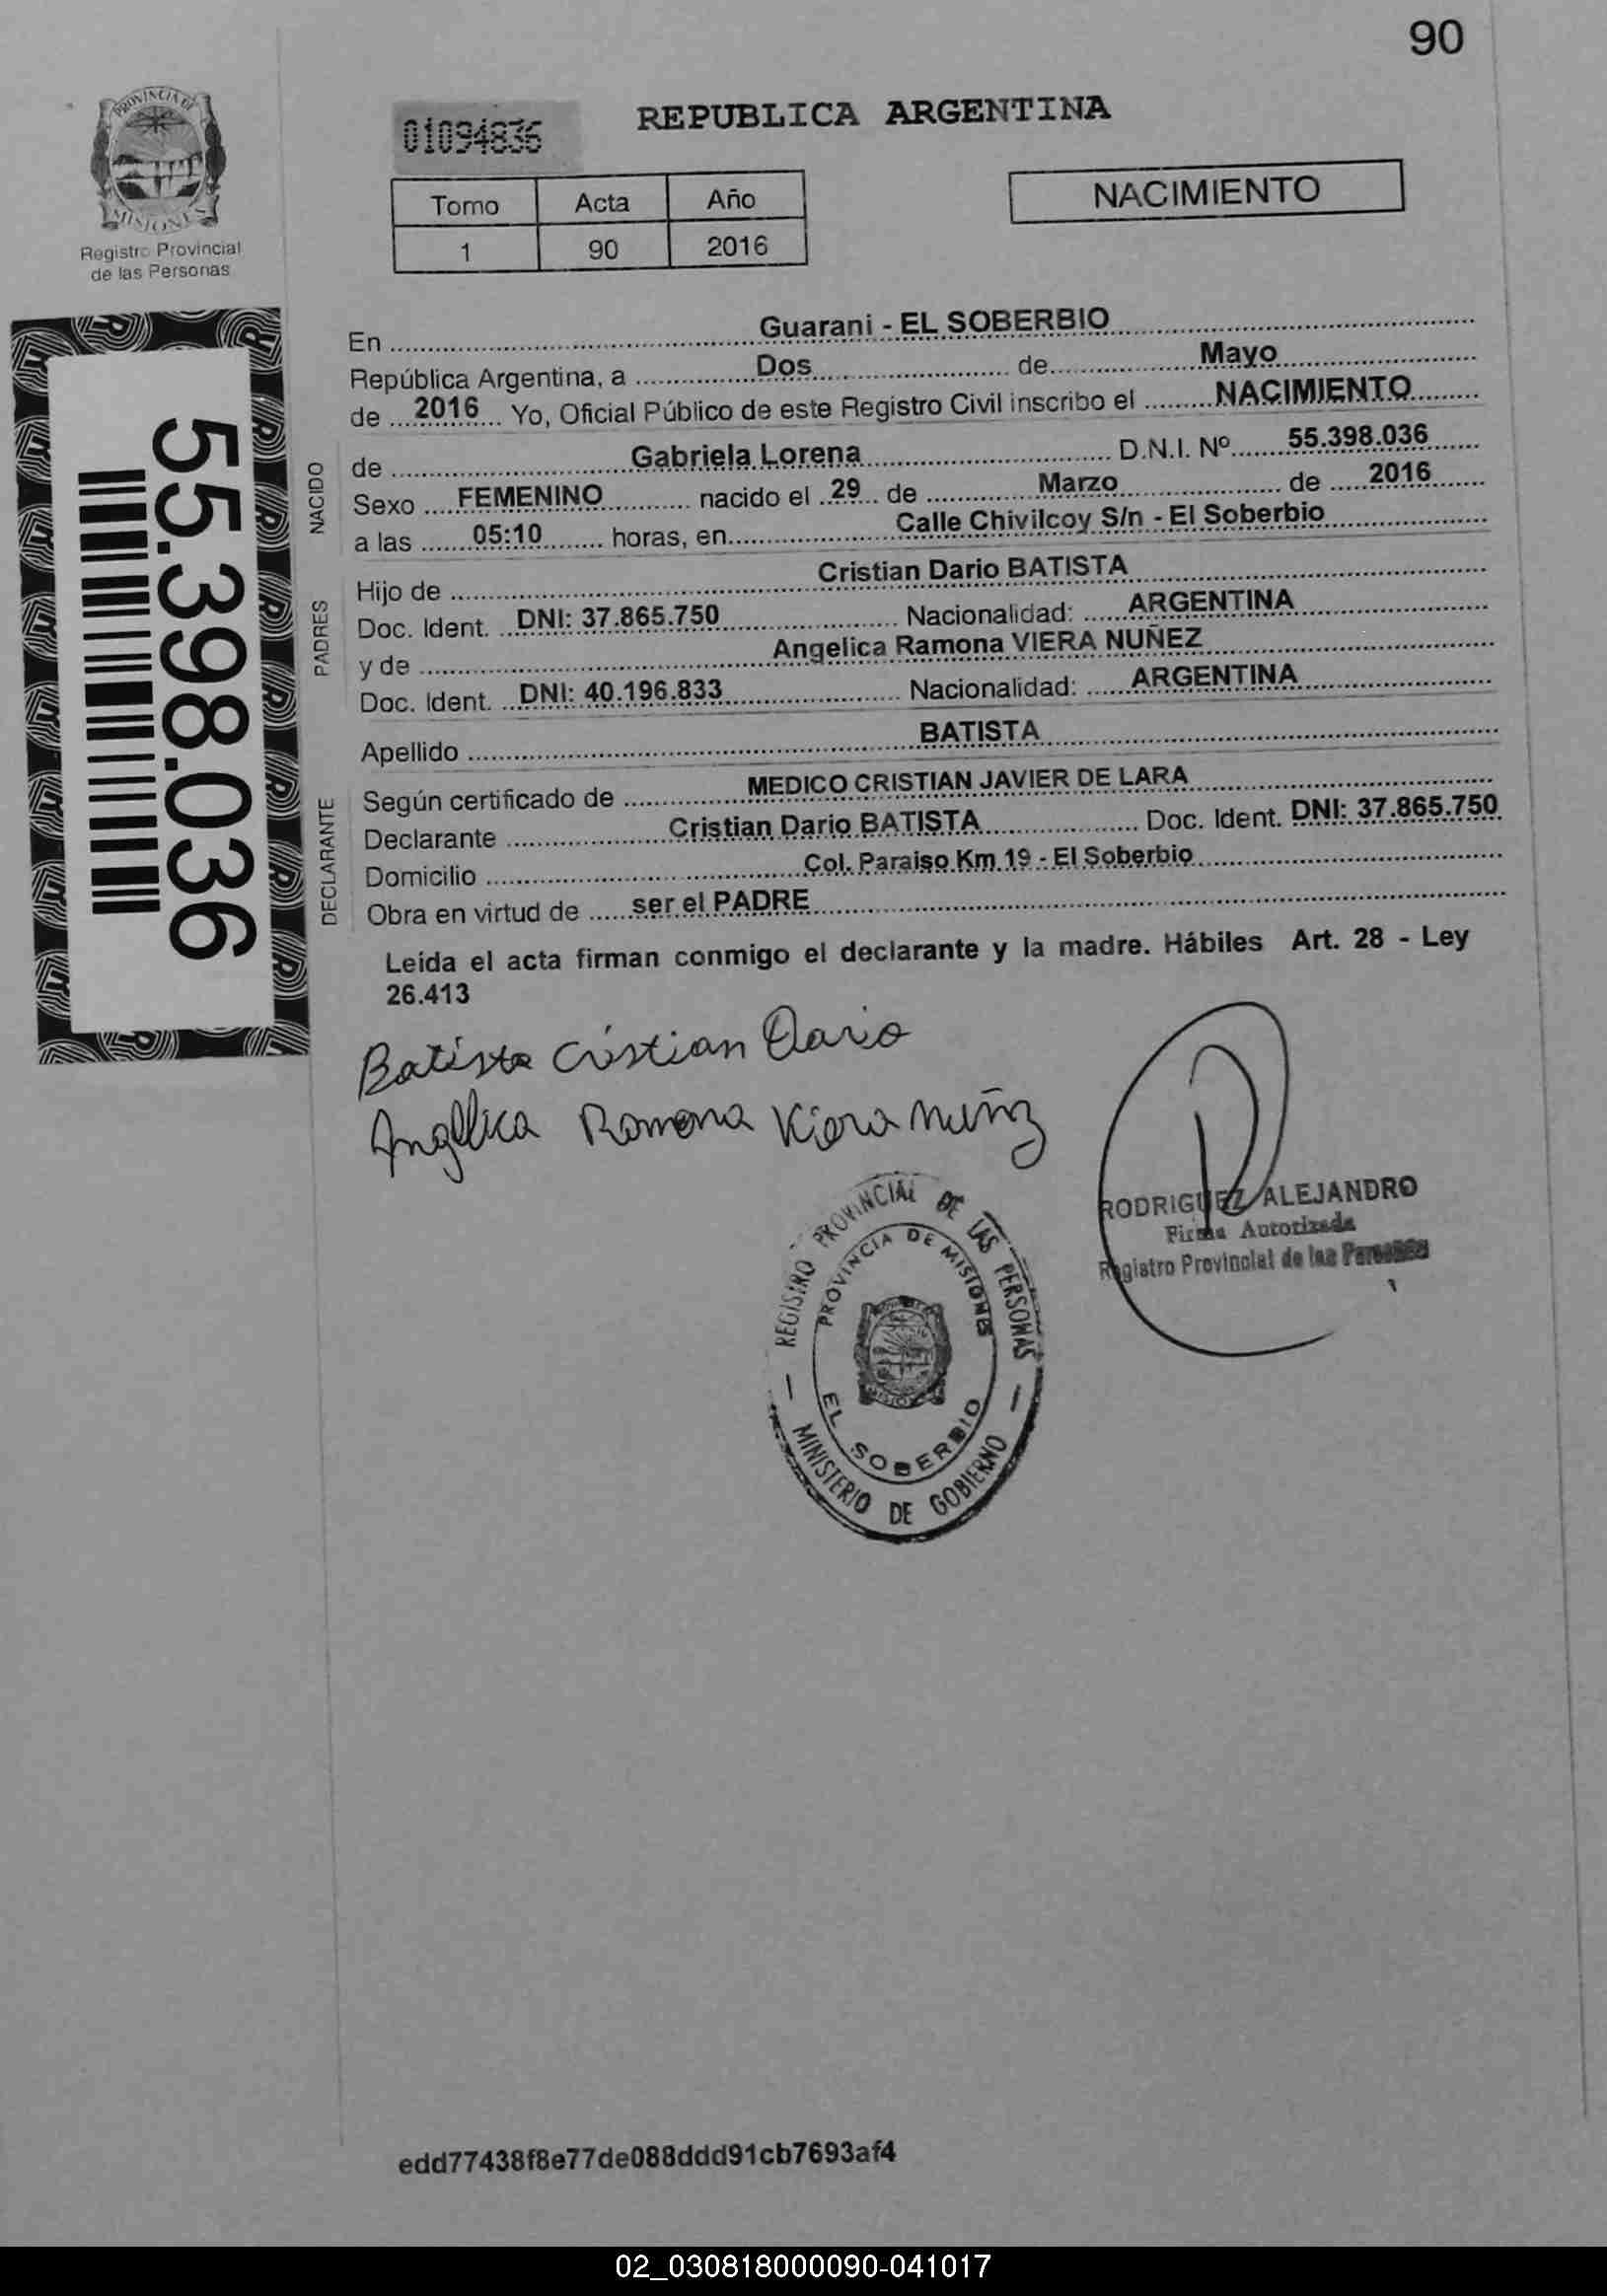 90
PROVINCIA DE
MISIONES
Registro Provincial
de las Personas
01094836
REPUBLICA ARGENTINA
Tomo Acta Año
1 90 2016
NACIMIENTO
55.398.036
En Guarani - EL SOBERBIO
República Argentina, a Dos de Mayo
de 2016 Yo, Oficial Público de este Registro Civil inscribo el NACIMIENTO
NACIDO
de Gabriela Lorena D.N.I. Nº 55.398.036
Sexo FEMENINO nacido el 29 de Marzo de 2016
a las 05:10 horas, en Calle Chivilcoy S/n - El Soberbio
PADRES
Hijo de Cristian Dario BATISTA
Doc. Ident. DNI: 37.865.750 Nacionalidad: ARGENTINA
y de Angelica Ramona VIERA NUÑEZ
Doc. Ident. DNI: 40.196.833 Nacionalidad: ARGENTINA
Apellido BATISTA
DECLARANTE
Según certificado de MEDICO CRISTIAN JAVIER DE LARA
Declarante Cristian Dario BATISTA Doc. Ident. DNI: 37.865.750
Domicilio Col. Paraiso Km 19 - El Soberbio
Obra en virtud de ser el PADRE
Leida el acta firman conmigo el declarante y la madre. Hábiles Art. 28 - Ley
26.413
Batista Cristian Dario
Angelica Ramona Viera Nuñz
RODRIGUEZ ALEJANDRO
Firma Autorizada
Registro Provincial de las Personas
REGISTRO PROVINCIAL DE LAS PERSONAS
PROVINCIA DE MISIONES
EL SOBERBIO
MINISTERIO DE GOBIERNO
edd77438f8e77de088ddd91cb7693af4
02_030818000090-041017